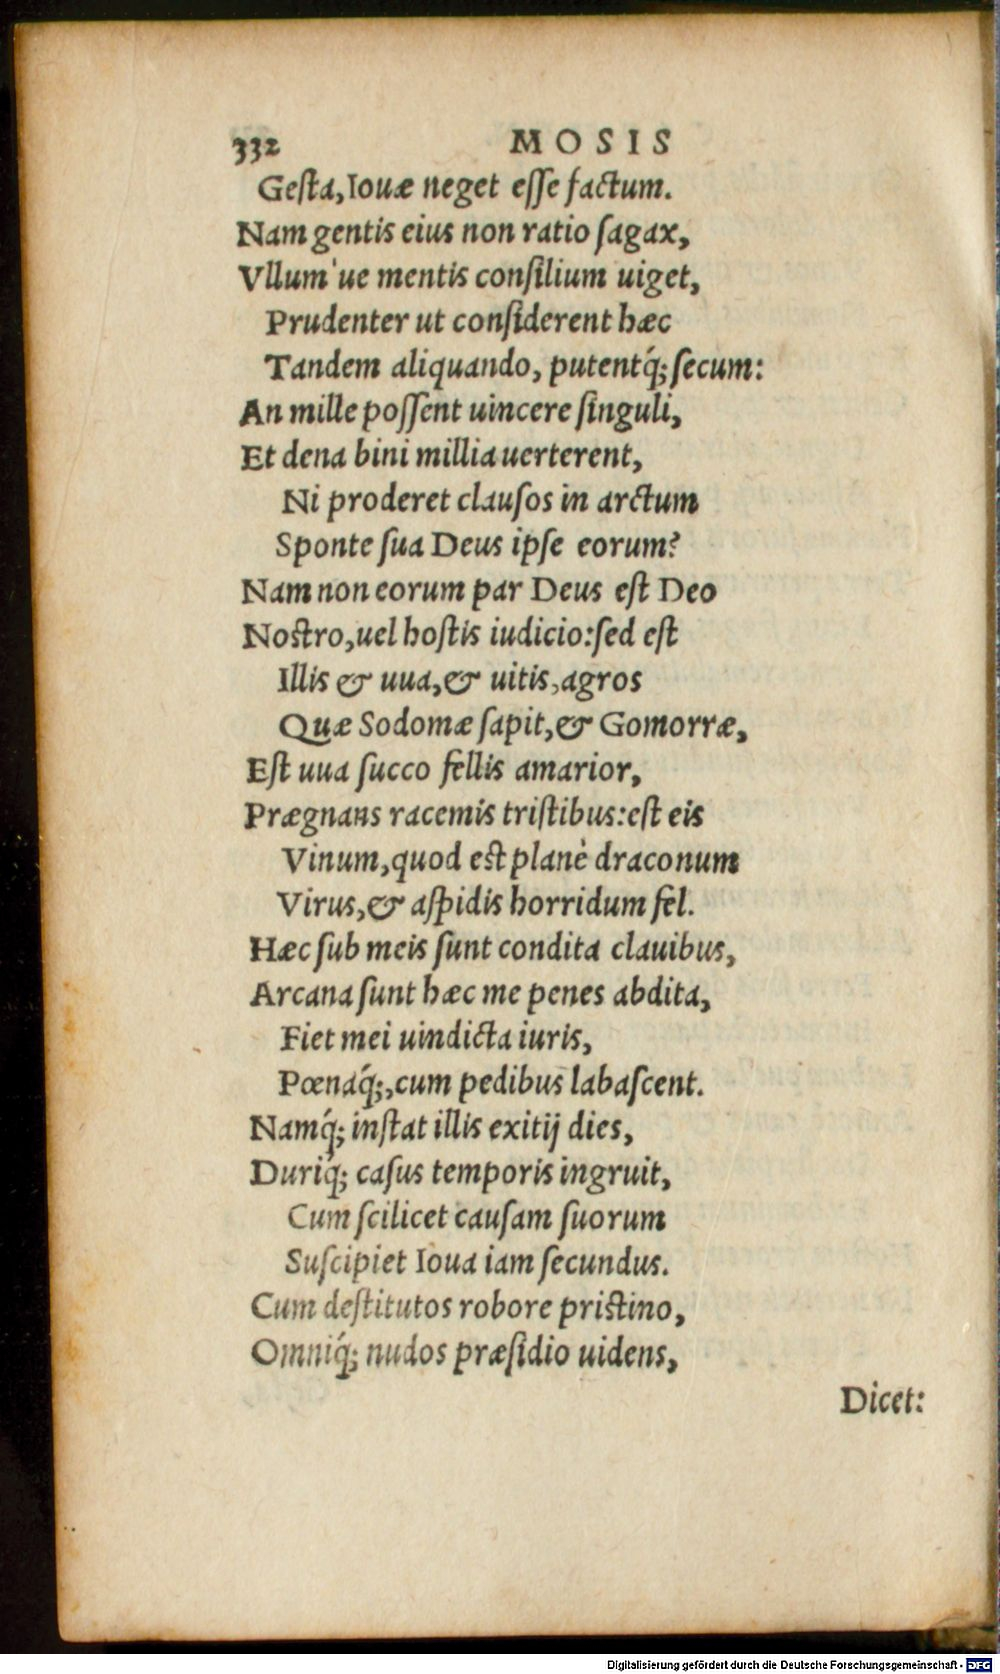 332 MOSIS
Gesta, Iouæ neget esse factum.
Nam gentis eius non ratio sagax,
Vllum'ue mentis consilium uiget,
Prudenter ut considerent hæc
Tandem aliquando, putentq́; secum:
An mille possent uincere singuli,
Et dena bini millia uerterent,
Ni proderet clausos in arctum
Sponte sua Deus ipse eorum?
Nam non eorum par Deus est Deo
Nostro, uel hostis iudicio: sed est
Illis & uua, & uitis, agros
Quæ Sodomæ sapit, & Gomorræ,
Est uua succo fellis amarior,
Prægnans racemis tristibus: est eis
Vinum, quod est planè draconum
Virus, & aspidis horridum fel.
Hæc sub meis sunt condita clauibus,
Arcana sunt hæc me penes abdita,
Fiet mei uindicta iuris,
Pœnaq́;, cum pedibus labascent.
Namq́; instat illis exitij dies,
Duriq́; casus temporis ingruit,
Cum scilicet causam suorum
Suscipiet Ioua iam secundus.
Cum destitutos robore pristino,
Omniq́; nudos præsidio uidens,
Dicet:
Digitalisierung gefördert durch die Deutsche Forschungsgemeinschaft - DFG